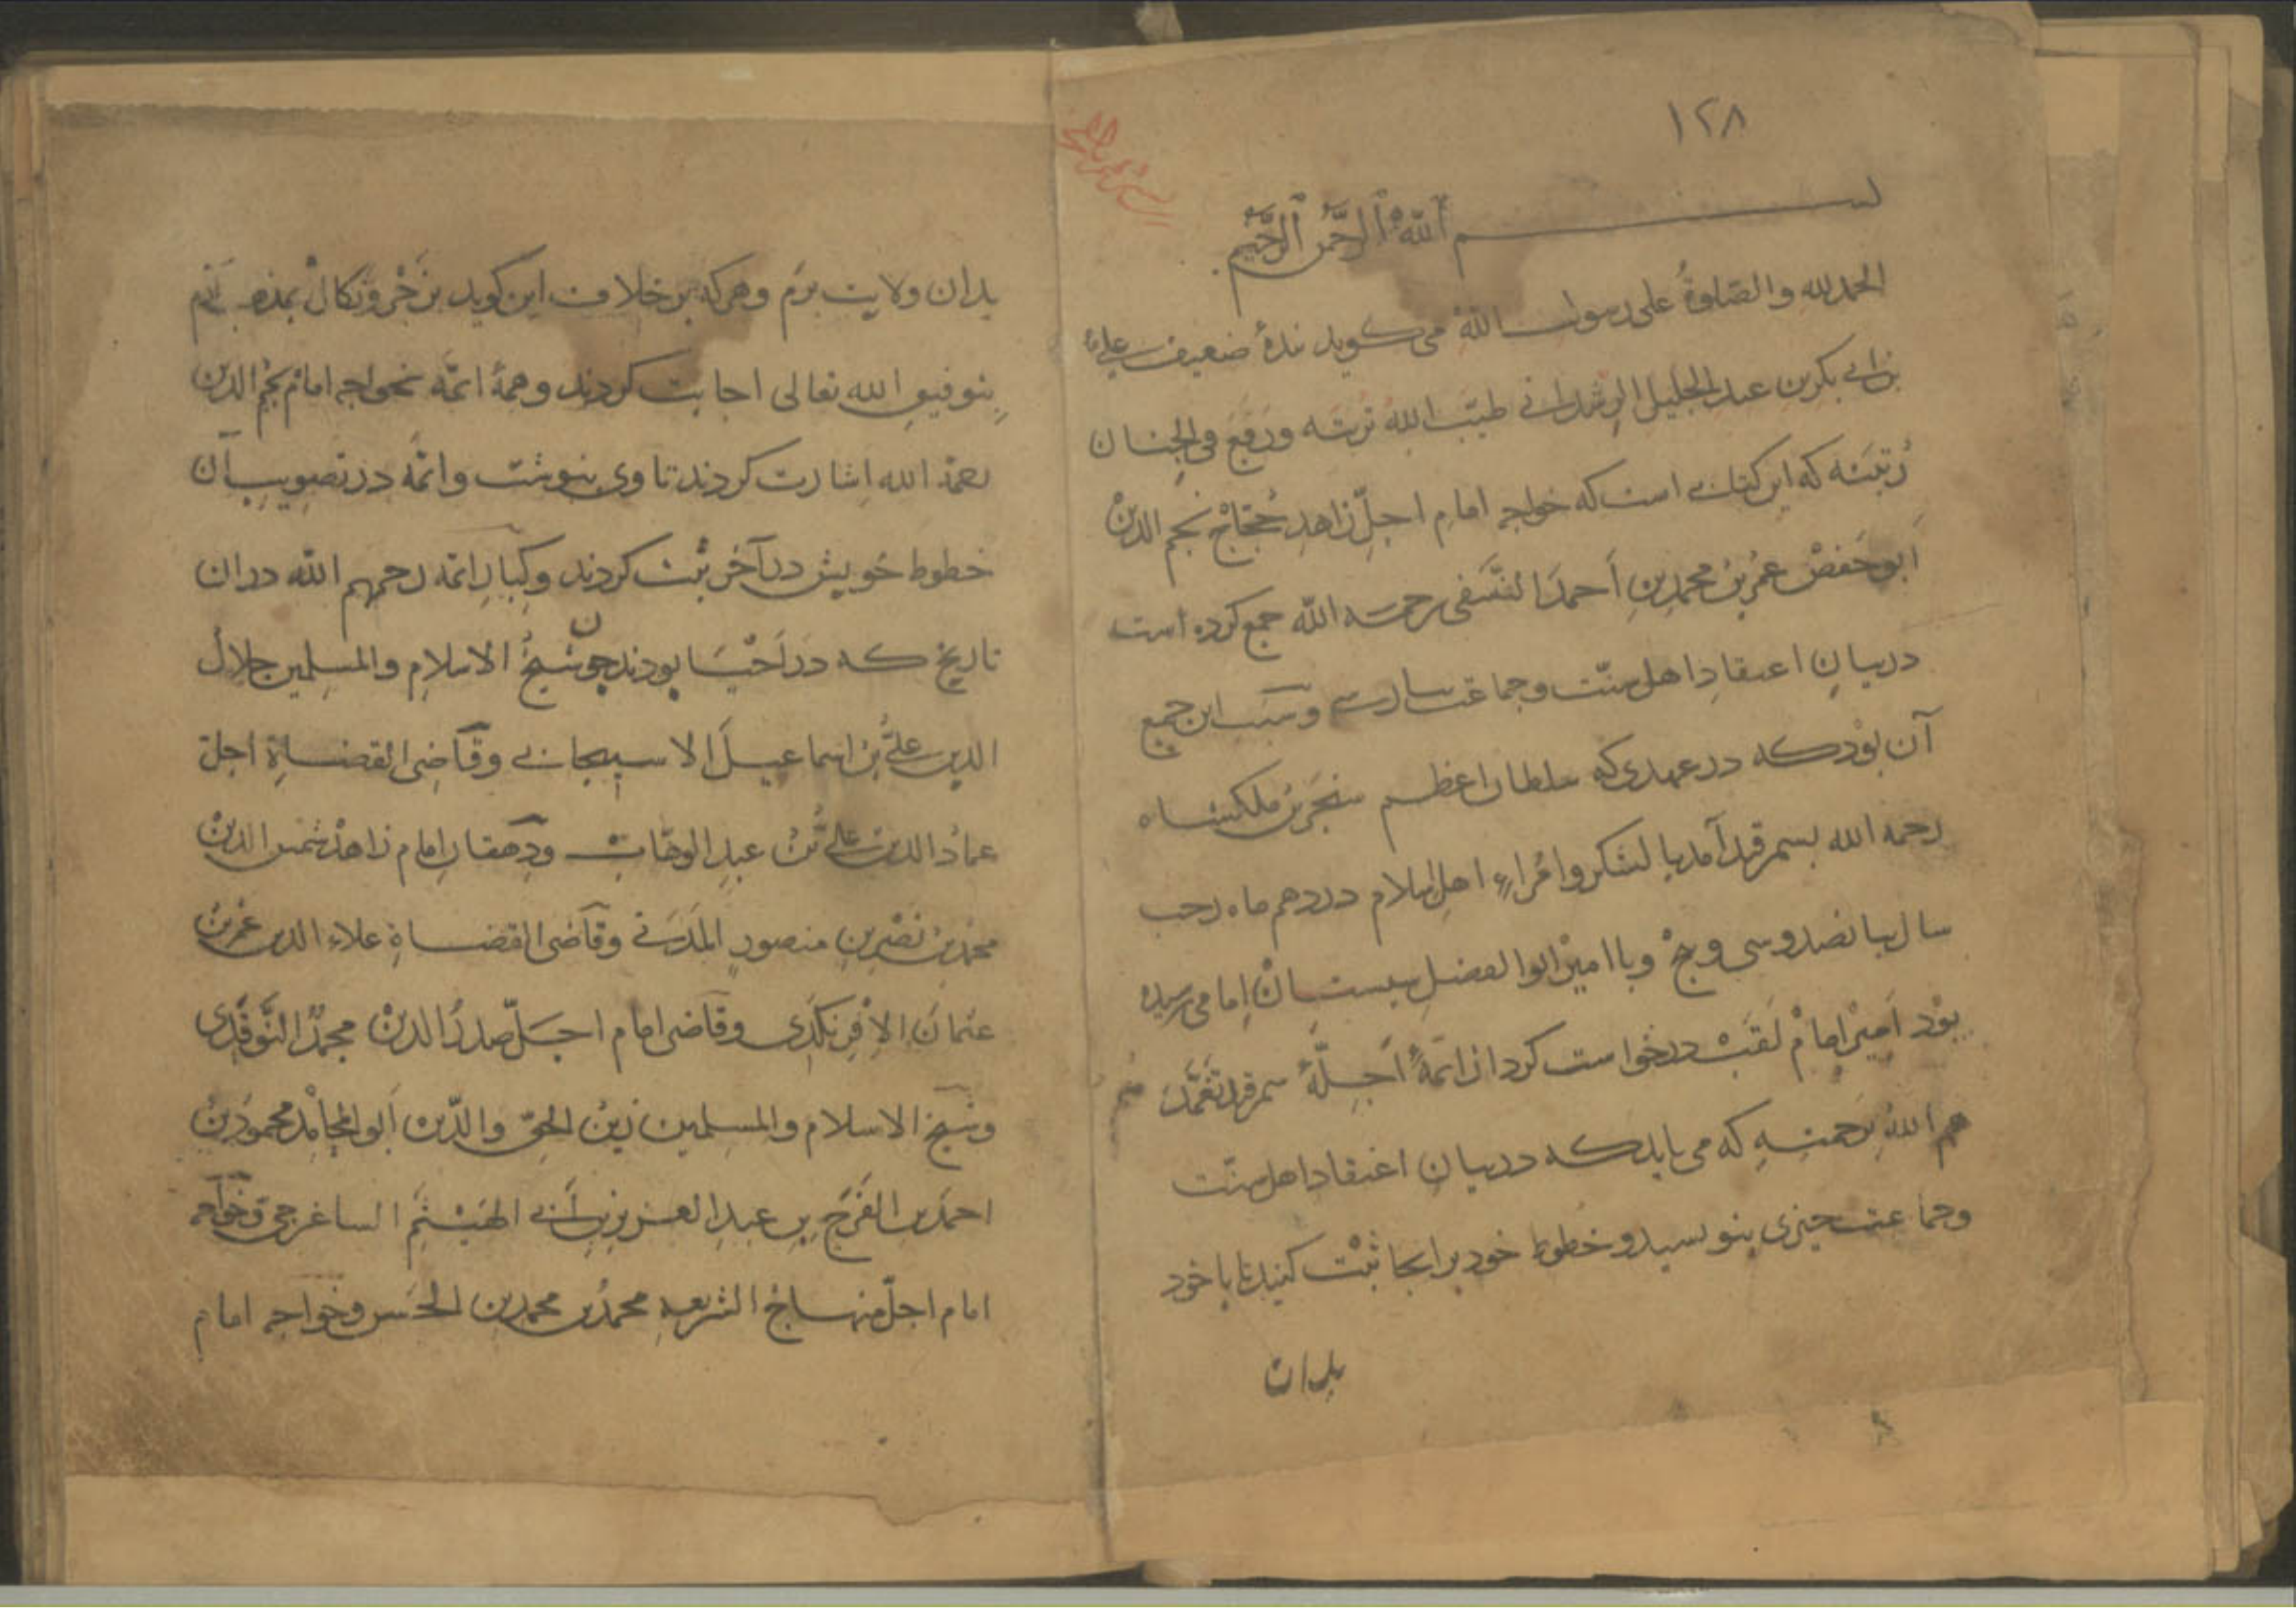 ۱۲۸
بسم الله الرحمن الرحیم
الحمدلله والصلوةُ علی رسول اللهْ می کوید بندهٔ ضعیف علی
بن ابی بکر بن عبد الجلیل الرشدانی طیّب اللهُ تربته ورَفَعَ فی الجنان
رُتبتَه که این کتابی است که خواجه امامِ اجلّ زاهدِ حُجّاجْ نجم الدینْ
ابو حَفصْ عُمر بنُ محمدِ بنِ اَحمدَ النَّسَفی رحمة الله جمع کرده است
در بیانِ اعتقادِ اهل سنّت وجماعت بپارسی وسَبَب این جمع
آن بوْد که در عهدی که سلطان اعظم سنجَر بنُ ملکشاه
رحمه الله بسمرقند آمد با لشکر وامُراءِ اهل اسلام در دهم ماه رجب
سال بپانصد وسی وپنجْ وبا امیْر ابو الفضلِ سیستانْ امامی رسیده
بوْد امیْر امامْ لَقَبْ درخواست کرد از ائمهٔ اَجِلّهٔ سمرقند تَغَمَّدَ
هم اللهُ برَحمتِهِ که می باید که در بیانِ اعتقاد اهل سنّت
وجماعت چیزی بنویسید وخطوط خود بر انجا ثبْت کنید تا با خود
بدان
بدان ولایت برَم وهر که بر خلاف این کوید بزَجْر ونَکالْ
بتوفیقِ الله تعالی اجابت کردند وهمهٔ ائمّه بخواجه امامْ نجمُ الدین
رحمة الله اشارت کردند تا وی بنوشت وائمّه در تصویبِ آن
خطوط خویش در آخر ثبْت کردند وکِبارِ ائمه رحمهم الله دران
تاریخ که در اَحْیَا بودند چون شیخُ الاسلامِ والمسلِمین جلال
الدین علیُّ بنُ اسماعیلَ الاسبیجابی وقاضی القضاةِ اجلّ
عمادُ الدین علیُّ بْنُ عبدِ الوهّابْ ودهقان امام زاهدْ شمس الدینْ
محمد بنُ نَصْرِ بنِ منصورِ المَدَینی وقاضی القضاةِ علاء الدین عُمَر بنُ
عثمانَ وقاضی امام اجلّ صدرُ الدینْ محمدٌ
وشیخ الاسلام والمسلمین زینُ الحقِّ والدّین ابو المحامدْ محمودُ بنُ
احمدَ بنِ الفَرَجِ بنِ عبدِ العزیزِ بنِ الساغرجی وخواجه
امام اجلّ منهاج الشریعهِ محمدُ بن محمد بن الحَسَن وخواجه امام